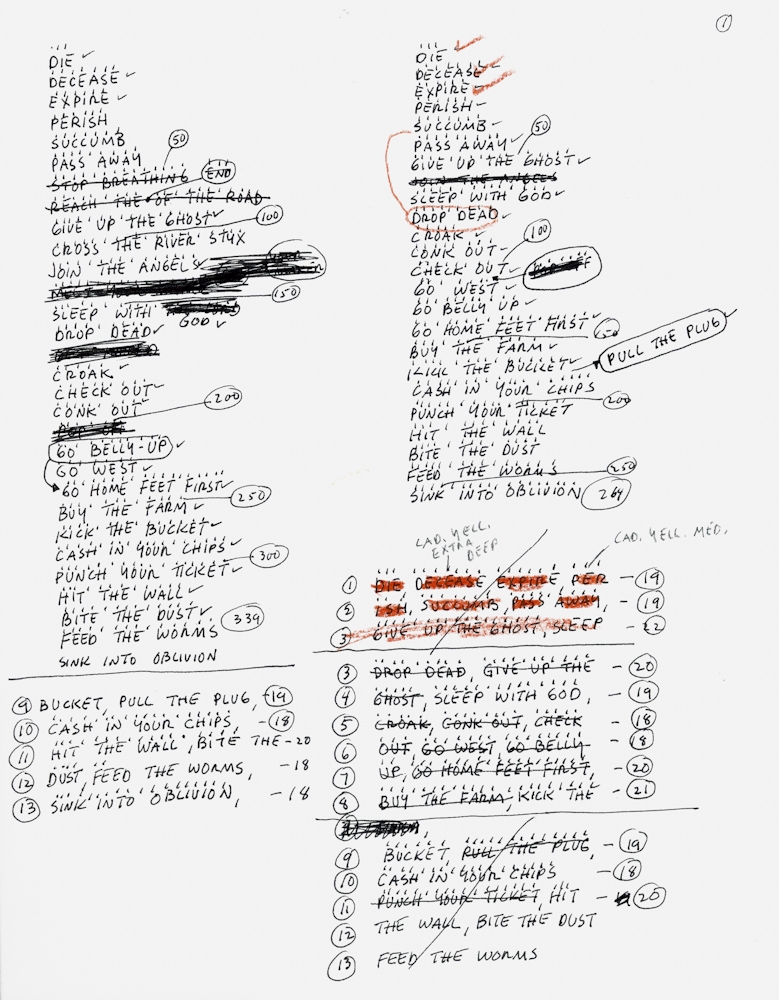 1
DIE
DECEASE
EXPIRE
PERISH
SUCCUMB
PASS AWAY 50
STOP BREATHING
REACH THE END OF THE ROAD
GIVE UP THE GHOST 100
CROSS THE RIVER STYX
JOIN THE ANGELS
150
SLEEP WITH GOD
DROP DEAD
CROAK
CHECK OUT
CONK OUT 200
POP OFF
GO BELLY-UP
GO WEST
GO HOME FEET FIRST
BUY THE FARM 250
KICK THE BUCKET
CASH IN YOUR CHIPS
PUNCH YOUR TICKET 300
HIT THE WALL
BITE THE DUST
FEED THE WORMS 339
SINK INTO OBLIVION
9 BUCKET, PULL THE PLUG, -19
10 CASH IN YOUR CHIPS, -18
11 HIT THE WALL, BITE THE -20
12 DUST, FEED THE WORMS, -18
13 SINK INTO OBLIVION, -18
DIE
DECEASE
EXPIRE
PERISH
SUCCUMB
PASS AWAY 50
GIVE UP THE GHOST
JOIN THE ANGELS
SLEEP WITH GOD
DROP DEAD
CROAK
CONK OUT 100
CHECK OUT
GO WEST
GO BELLY UP
GO HOME FEET FIRST 150
BUY THE FARM
KICK THE BUCKET PULL THE PLUG
CASH IN YOUR CHIPS
PUNCH YOUR TICKET 200
HIT THE WALL
BITE THE DUST
FEED THE WORMS 250
SINK INTO OBLIVION 264
CAD. YELL. EXTRA DEEP
CAD. YELL. MED.
1 DIE DECEASE EXPIRE PER -19
2 ISH, SUCCUMB, PASS AWAY, -19
3 GIVE UP THE GHOST, SLEEP -22
3 DROP DEAD, GIVE UP THE -20
4 GHOST, SLEEP WITH GOD, -19
5 CROAK, CONK OUT, CHECK -18
6 OUT GO WEST GO BELLY -18
7 UP, GO HOME FEET FIRST, -20
8 BUY THE FARM, KICK THE -21
9 BUCKET, PULL THE PLUG, -19
10 CASH IN YOUR CHIPS -18
11 PUNCH YOUR TICKET, HIT -20
12 THE WALL, BITE THE DUST
13 FEED THE WORMS